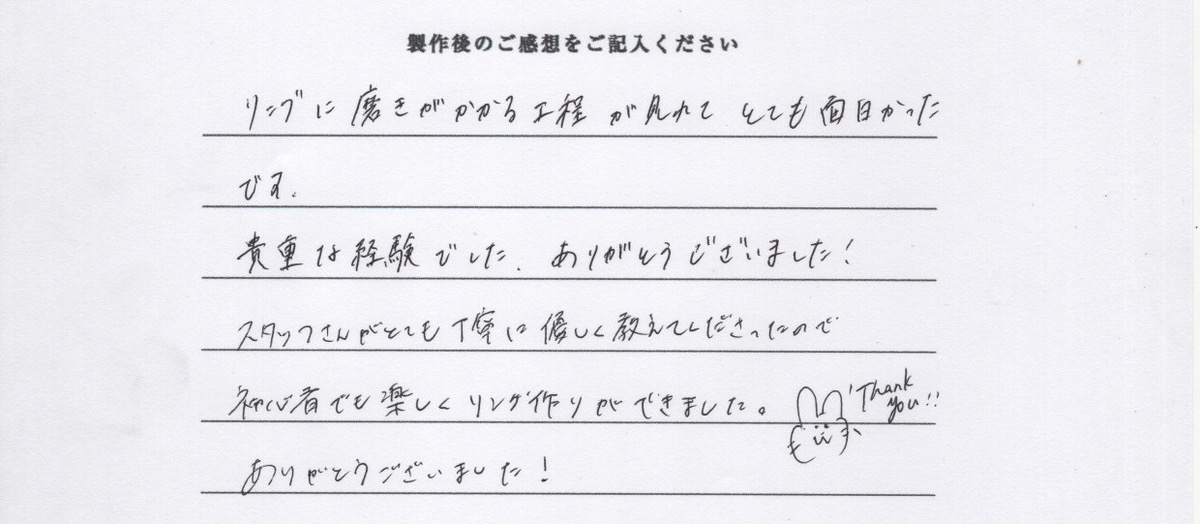 製作後のご感想をご記入ください
リングに磨きがかかる工程が見れてとても面白かった
です.
貴重な経験でした. ありがとうございました!
スタッフさんがとても丁寧に優しく教えてくださったので
初心者でも楽しくリング作りができました。
Thank
you!!
ありがとうございました!